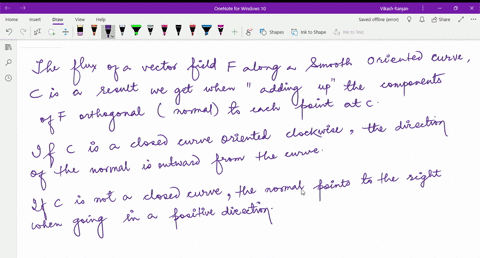 OneNote for Windows 10
Vikash Ranjan
File Home Insert Draw View Help
Saved offline (error)
Shapes Ink to Shape Ink to Text
The flux of a vector field F along a Smooth Oriented curve,
C is a result we get when "adding up" the components
of F orthogonal (normal) to each point at C.
If C is a closed curve oriented clockwise, the direction
of the normal is outward from the curve.
If C is not a closed curve, the normal points to the right
when going in a positive direction.